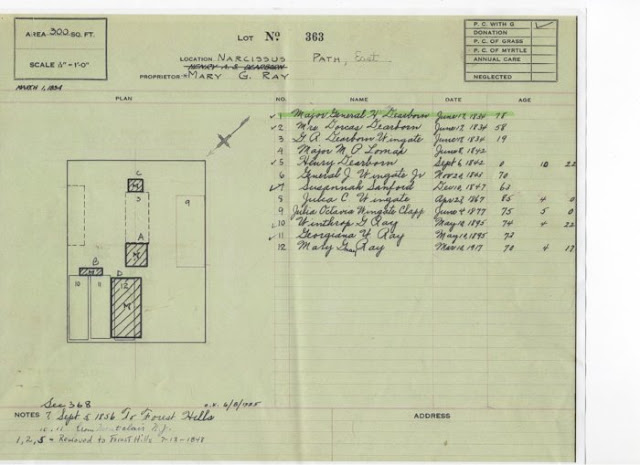 AREA 300 SQ. FT.
SCALE ⅛"-1'-0"
MARCH 1, 1834
LOT No 363
LOCATION NARCISSUS PATH, East
PROPRIETOR MARY G. RAY
P. C. WITH G
DONATION
P. C. OF GRASS
P. C. OF MYRTLE
ANNUAL CARE
NEGLECTED
PLAN
NO. NAME DATE AGE
1 Major General H. Dearborn June 17, 1834 78
2 Mrs Dorcas Dearborn June 17, 1834 58
3 G. R. Dearborn Wingate June 17, 1834 19
4 Major M. P. Lomax June 8, 1842
5 Henry Dearborn Sept 6, 1842 0 10 22
6 General J. Wingate Jr Nov 20, 1843 70
7 Susannah Sanford Dec 10, 1847 63
8 Julia C Wingate Apr 28, 1867 85 4 0
9 Julia Octavia Wingate Clapp June 4, 1877 75 5 0
10 Winthrop G Ray May 12, 1895 74 4 22
11 Georgiana W. Ray May 12, 1895 72
12 Mary Ray Mar 12, 1917 70 4
C
3
9
A
M
B
M
D
10
8
12
M
See 368
NOTES 7 Sept 5 1856 To Forest Hills
1, 2, 5 - Removed to Forest Hills
ADDRESS